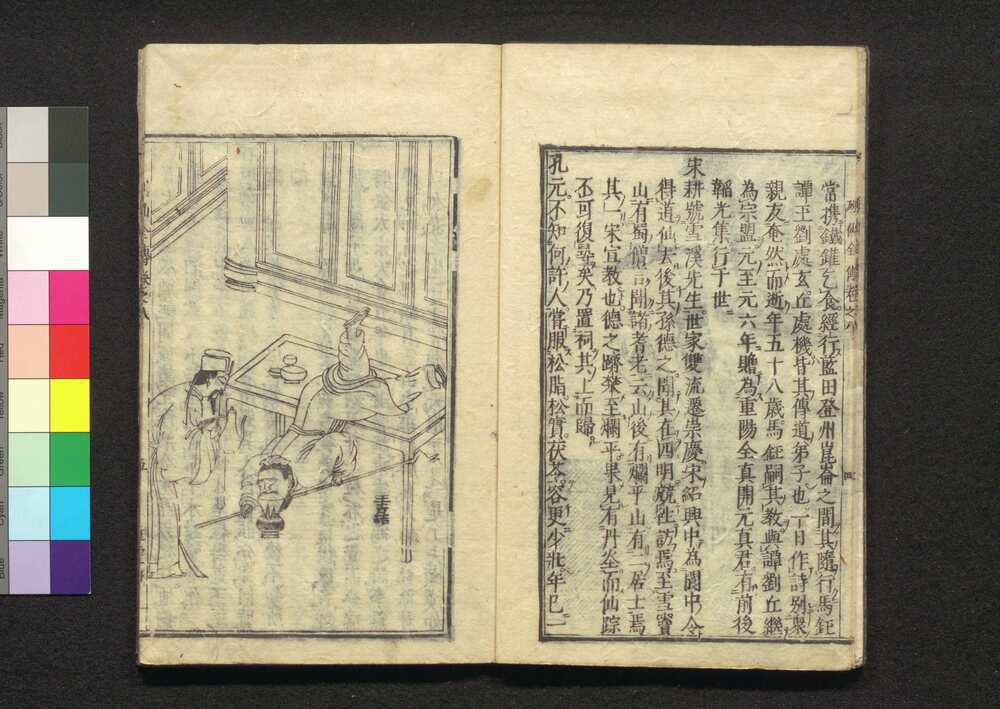 仙全傳卷之八
四
當攜鐵錐乞食經行藍田登州崑崙之間其隨行馬鈺
譚王劉處玄丘處機皆其傳道弟子也一日作詩別衆
親友奄然而逝年五十八歲馬鈺嗣其教與譚劉丘繼
為宗盟元至元六年贈為重陽全真開元真君有前後
韜光集行于世
宋耕號雪溪先生世家雙流遷崇慶宋紹興中為閬中令
得道仙去後其孫德之聞其在四明競往訪焉至雪竇
山有蜀僧言聞諸耆老云山後有爛平山有二居士焉
其一宋宣教也德之躋攀至爛平果見有丹而仙踪
不可復尋矣乃置祠其上而歸
孔元不知何許人嘗服松脂松實茯苓容更少壯年已一
王嚞
仙傳卷之八
五